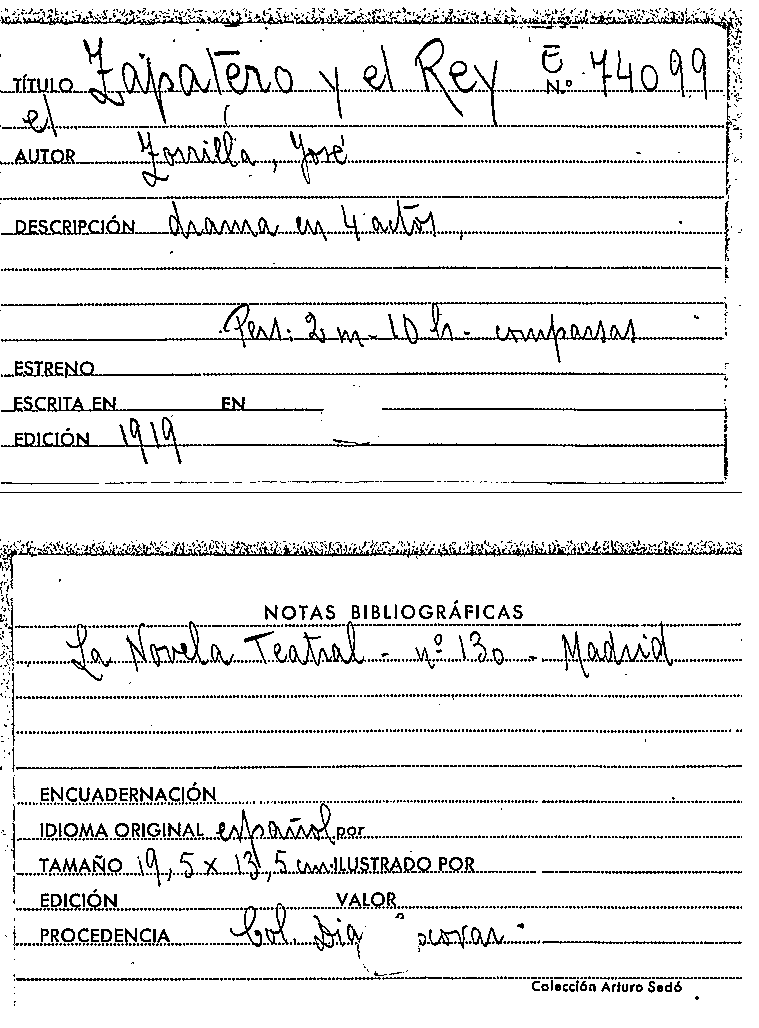 TÍTULO Zapatero y el Rey E Nº 74099
el
AUTOR Zorrilla, José
DESCRIPCIÓN drama en 4 actos,
Pers: 2 m - 10 h - comparsas
ESTRENO
ESCRITA EN EN
EDICIÓN 1919
NOTAS BIBLIOGRÁFICAS
La Novela Teatral - nº 130 - Madrid
ENCUADERNACIÓN
IDIOMA ORIGINAL español por
TAMAÑO 19,5 x 13,5 cm. ILUSTRADO POR
EDICIÓN VALOR
PROCEDENCIA Col.
Colección Arturo Sedó